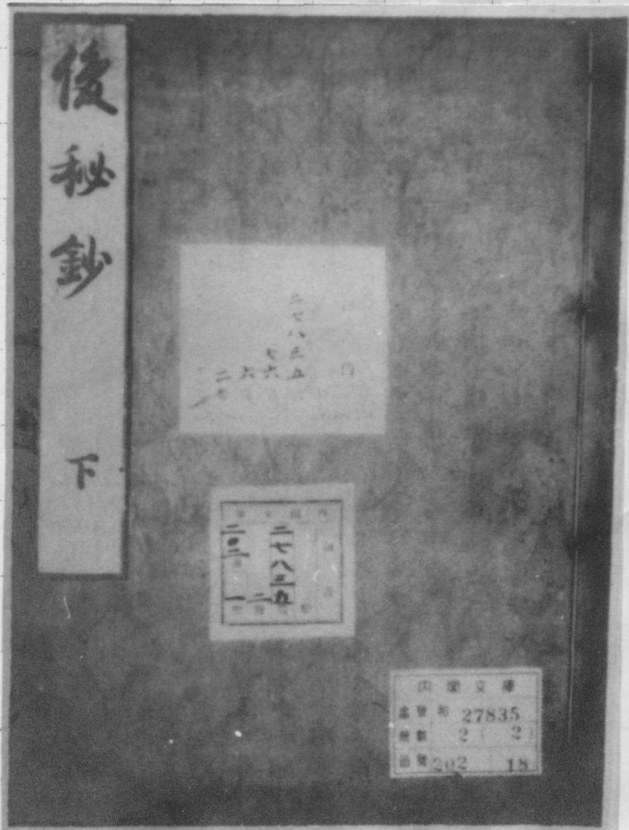 後秘鈔 下
二七八三五
七六
六
二冊
二七八三五
二〇二
二
一
内閣文庫
番號 和 27835
冊數 2 ( 2)
函號 202 18